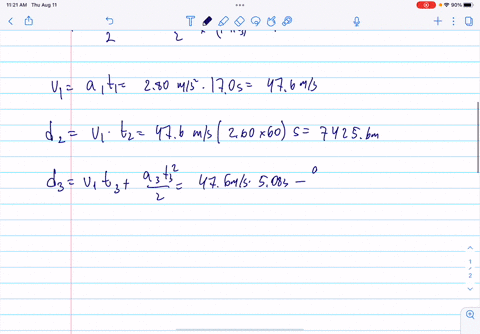 11:21 AM Thu Aug 11
90%
2 2
v₁ = a₁t₁ = 2.80 m/s² · 17.0s = 47.6 m/s
d₂ = v₁ · t₂ = 47.6 m/s (2.60×60) s = 7425.6m
d₃ = v₁ t₃ + a₃t₃²/2 = 47.6m/s · 5.08s –
1
2